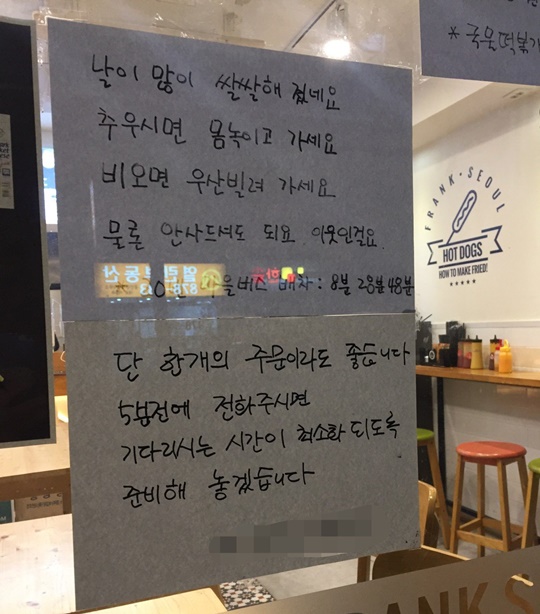 날이 많이 쌀쌀해 졌네요
추우시면 몸녹이고 가세요
비오면 우산빌려 가세요
물론 안사드셔도 되요 이웃인걸요
마을버스 배차: 8분 28분 48분
단 한개의 주문이라도 좋습니다
5분전에 전화주시면
기다리시는 시간이 최소화 되도록
준비해 놓겠습니다
* 국물떡볶기
FRANK·SEOUL
HOT DOGS
HOW TO MAKE FRIED!
FRANK S